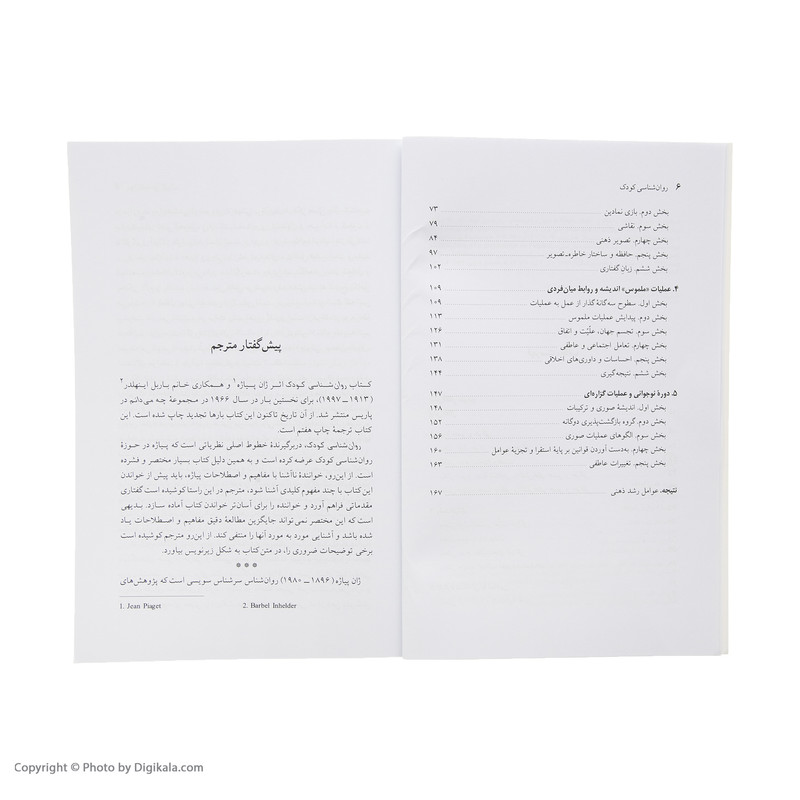 ۶ روان‌شناسی کودک
بخش دوم. بازی نمادین ۷۳
بخش سوم. نقاشی ۷۹
بخش چهارم. تصویر ذهنی ۸۴
بخش پنجم. حافظه و ساختار خاطره-تصویر ۹۷
بخش ششم. زبان گفتاری ۱۰۲
۴. عملیات «ملموس» اندیشه و روابط میان‌فردی ۱۰۹
بخش اول. سطوح سه‌گانهٔ گذار از عمل به عملیات ۱۰۹
بخش دوم. پیدایش عملیات ملموس ۱۱۳
بخش سوم. تجسم جهان، علّیّت و اتفاق ۱۲۶
بخش چهارم. تعامل اجتماعی و عاطفی ۱۳۱
بخش پنجم. احساسات و داوری‌های اخلاقی ۱۳۸
بخش ششم. نتیجه‌گیری ۱۴۴
۵. دورهٔ نوجوانی و عملیات گزاره‌ای ۱۴۷
بخش اول. اندیشهٔ صوری و ترکیبات ۱۴۸
بخش دوم. گروه بازگشت‌پذیری دوگانه ۱۵۲
بخش سوم. الگوهای عملیات صوری ۱۵۶
بخش چهارم. به‌دست آوردن قوانین بر پایهٔ استقرا و تجزیهٔ عوامل ۱۶۰
بخش پنجم. تغییرات عاطفی ۱۶۳
نتیجه. عوامل رشد ذهنی ۱۶۷
پیش‌گفتار مترجم
کتاب روان‌شناسی کودک اثر ژان پیاژه۱ و همکاری خانم باربل اینهلدر۲
(۱۹۱۳ــ۱۹۹۷)، برای نخستین بار در سال ۱۹۶۶ در مجموعهٔ چه می‌دانم در
پاریس منتشر شد. از آن تاریخ تاکنون این کتاب بارها تجدید چاپ شده است. این
کتاب ترجمهٔ چاپ هفتم است.
روان‌شناسی کودک، دربرگیرندهٔ خطوط اصلی نظریاتی است که پیاژه در حوزهٔ
روان‌شناسی کودک عرضه کرده است و به همین دلیل کتاب بسیار مختصر و فشرده
است. از این‌رو، خوانندهٔ ناآشنا با مفاهیم و اصطلاحات پیاژه، باید پیش از خواندن
این کتاب با چند مفهوم کلیدی آشنا شود، مترجم در این راستا کوشیده است گفتاری
مقدماتی فراهم آورد و خواننده را برای آسان‌تر خواندن کتاب آماده سازد. بدیهی
است که این مختصر نمی‌تواند جایگزین مطالعهٔ دقیق مفاهیم و اصطلاحات یاد
شده باشد و آشنایی مورد به مورد آنها را منتفی کند. از این‌رو مترجم کوشیده است
برخی توضیحات ضروری را، در متن کتاب به شکل زیرنویس بیاورد.
● ● ●
ژان پیاژه (۱۸۹۶ ــ ۱۹۸۰) روان‌شناس سرشناس سویسی است که پژوهش‌های
1. Jean Piaget 2. Barbel Inhelder
Copyright © Photo by Digikala.com